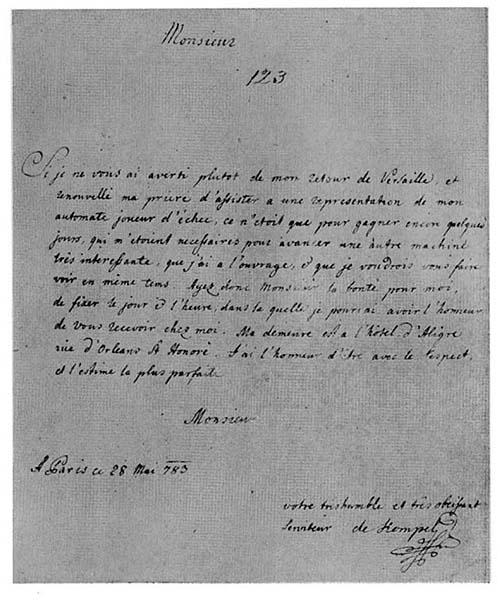 Monsieur
123
Si je ne vous ai averti plutot de mon retour de Versaille, et
renouvellé ma priere d'assister a une representation de mon
automate joueur d'échec, ce n'étoit que pour gagner encor quelques
jours, qui m'etoient necessaires pour avancer une autre machine
très interessante, que j'ai a l'ouvrage, & que je voudrois vous faire
voir en même tems. Ayez donc Monsieur la bonté pour moi,
de fixer le jour & l'heure, dans la quelle je pourai avoir l'honneur
de vous recevoir chez moi. Ma demeure est a l'hôtel d'Aligre
rue d'Orleans St Honoré. J'ai l'honneur d'etre avec le respect,
et l'estime la plus parfaite
Monsieur
A Paris ce 28 Mai 783
votre treshumble et très obeissant
Serviteur de Kempel